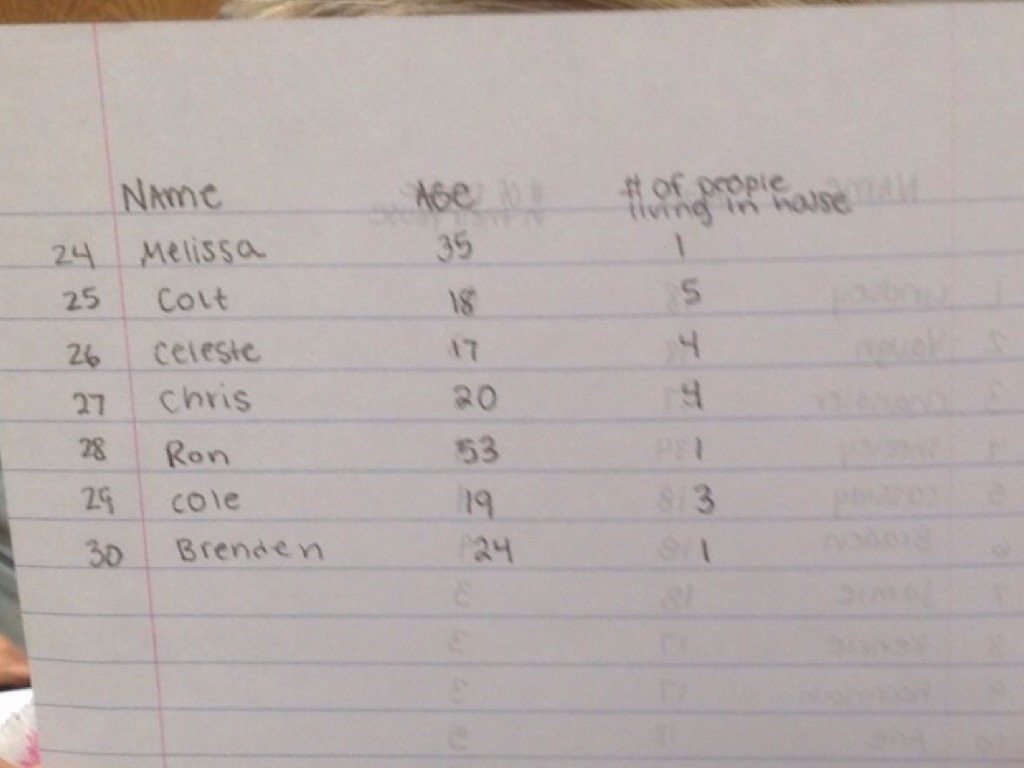 NAME Age # of people
living in house
24 Melissa 35 1
25 Colt 18 5
26 Celeste 17 4
27 Chris 20 4
28 Ron 53 1
29 Cole 19 3
30 Brenden 24 1